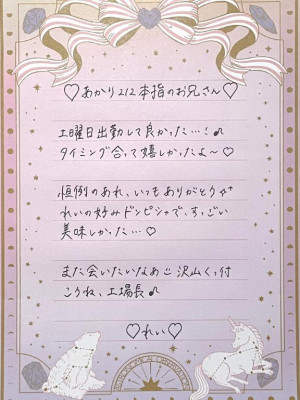 ♡あかり212本指のお兄さん♡
土曜日出勤して良かった…!♪
タイミング合って嬉しかったよ〜♡
恒例のあれ、いつもありがとう
れいの好みドンピシャで、すっごい
美味しかった…♡
また会いたいなあ 沢山くっ付
こうね、工場長♪
♡れい♡